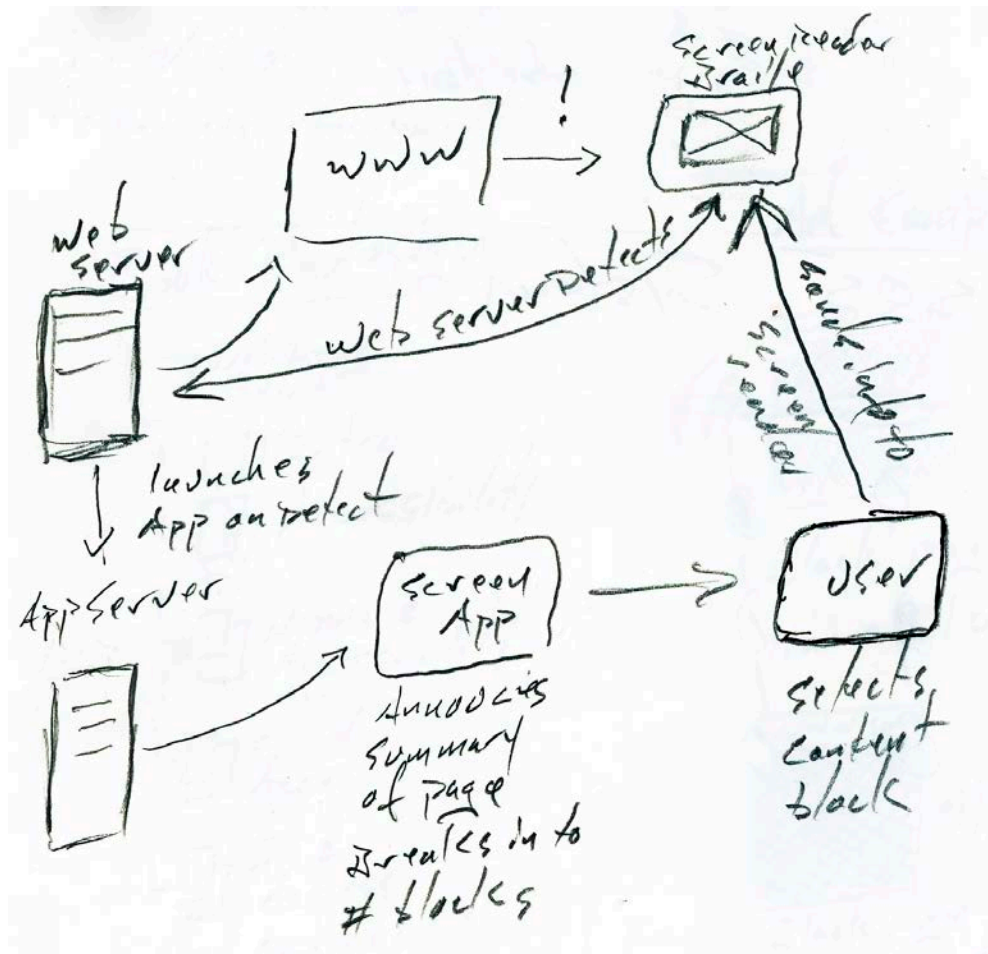 Screen Reader
Braille
!
WWW
Web
Server
Web Server Detects
Sends info to
Screen
reader
launches
App on Detect
App Server
Screen
App
User
Announces
Summary
of page
Breaks in to
# blocks
Selects
Content
block